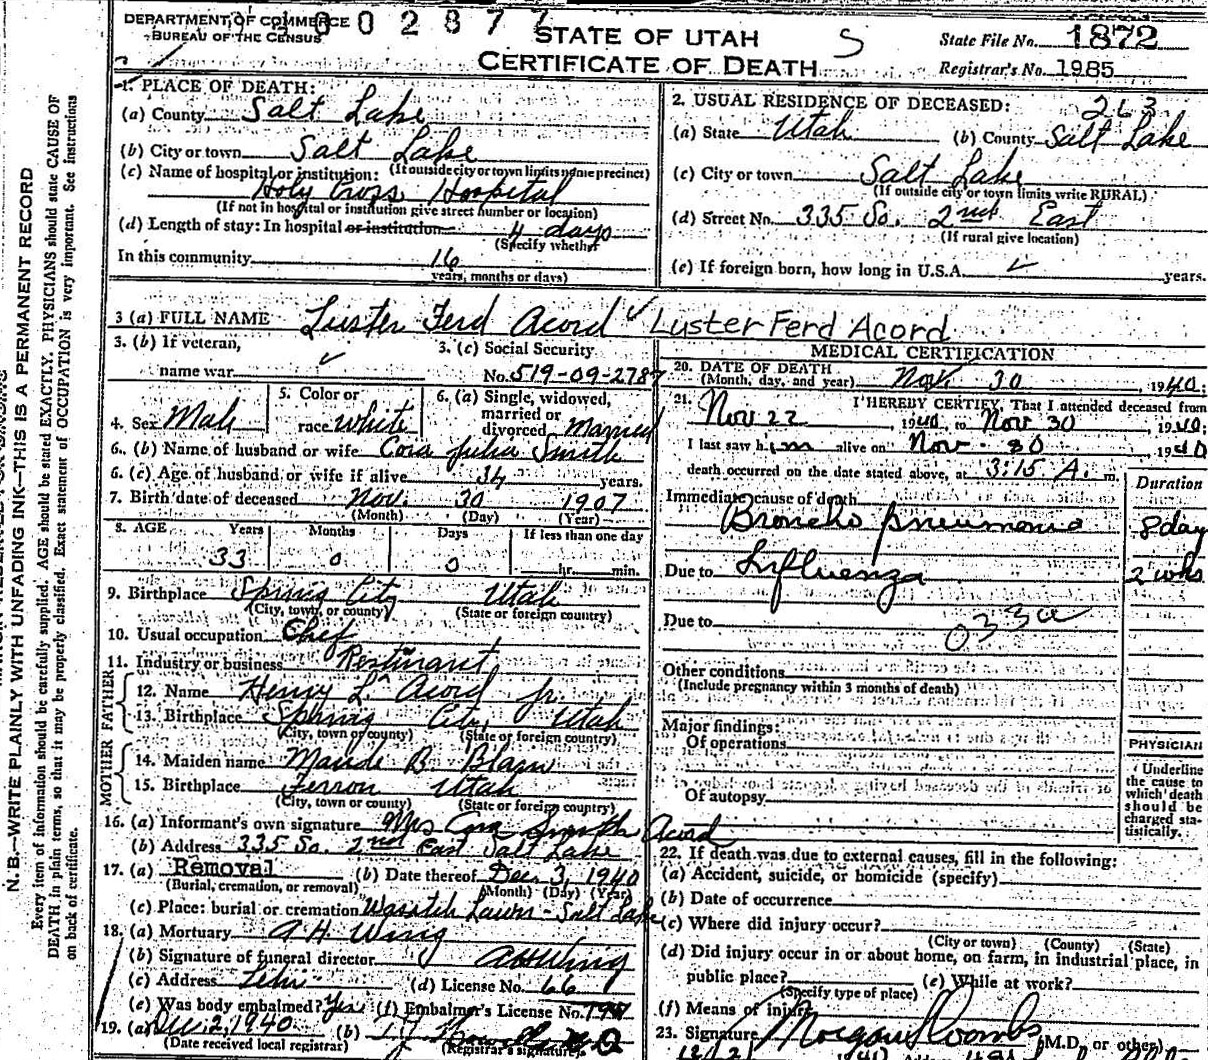 DEPARTMENT OF COMMERCE
BUREAU OF THE CENSUS
STATE OF UTAH
CERTIFICATE OF DEATH
S
State File No. 1872
Registrar's No. 1985
N. B.—WRITE PLAINLY WITH UNFADING INK—THIS IS A PERMANENT RECORD
Every item of information should be carefully supplied. AGE should be stated EXACTLY. PHYSICIANS should state CAUSE OF
DEATH in plain terms, so that it may be properly classified. Exact statement of OCCUPATION is very important. See Instructions
on back of certificate.
1. PLACE OF DEATH:
(a) County Salt Lake
(b) City or town Salt Lake
(If outside city or town limits name precinct)
(c) Name of hospital or institution:
Holy Cross Hospital
(If not in hospital or institution give street number or location)
(d) Length of stay: In hospital or institution 4 days
(Specify whether
In this community 16
years, months or days)
2. USUAL RESIDENCE OF DECEASED: 263
(a) State Utah (b) County Salt Lake
(c) City or town Salt Lake
(If outside city or town limits write RURAL)
(d) Street No. 335 So. 2nd East
(If rural give location)
(e) If foreign born, how long in U.S.A. years.
3 (a) FULL NAME Luster Ferd Acord Luster Ferd Acord
3. (b) If veteran,
name war
3. (c) Social Security
No. 519-09-2787
4. Sex Male
5. Color or
race white
6. (a) Single, widowed,
married or
divorced Married
6. (b) Name of husband or wife Cora Julia Smith
6. (c) Age of husband or wife if alive 34 years.
7. Birth date of deceased Nov. 30 1907
(Month) (Day) (Year)
8. AGE Years Months Days If less than one day
33 0 0 hr. min.
9. Birthplace Spring City Utah
(City, town, or county) (State or foreign country)
10. Usual occupation Chef
11. Industry or business Resturant
FATHER
12. Name Henry L. Acord Jr.
13. Birthplace Spring City, Utah
(City, town or county) (State or foreign country)
MOTHER
14. Maiden name Maude B. Blain
15. Birthplace Ferron Utah
(City, town or county) (State or foreign country)
16. (a) Informant's own signature Mrs Cora Smith Acord
(b) Address 335 So. 2nd East Salt Lake
17. (a) Removal (b) Date thereof Dec. 3, 1940
(Burial, cremation, or removal) (Month) (Day) (Year)
(c) Place: burial or cremation Wasatch Lawn - Salt Lake
18. (a) Mortuary A. H. Wing
(b) Signature of funeral director A H Wing
(c) Address Lehi (d) License No. 66
(e) Was body embalmed? Yes (f) Embalmer's License No.
19. (a) Dec 2, 1940 (b)
(Date received local registrar) (Registrar's signature)
MEDICAL CERTIFICATION
20. DATE OF DEATH
(Month, day, and year) Nov. 30, 1940;
21. I HEREBY CERTIFY, That I attended deceased from
Nov 22, 1940, to Nov 30, 1940;
I last saw him alive on Nov - 30 1940
death occurred on the date stated above, at 3:15 A. m.
Duration
Immediate cause of death
Broncho pneumonia 8 day
Due to Influenza 2 wks
Due to 033a
Other conditions
(Include pregnancy within 3 months of death)
Major findings:
Of operations
Of autopsy
PHYSICIAN
Underline
the cause to
which death
should be
charged sta-
tistically.
22. If death was due to external causes, fill in the following:
(a) Accident, suicide, or homicide (specify)
(b) Date of occurrence
(c) Where did injury occur?
(City or town) (County) (State)
(d) Did injury occur in or about home, on farm, in industrial place, in
public place? (e) While at work?
(Specify type of place)
(f) Means of injury
23. Signature Morgan Coombs (M.D. or other)